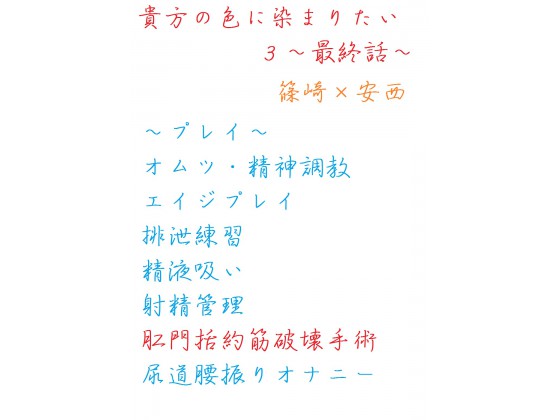 貴方の色に染まりたい
3～最終話～
篠崎×安西
～プレイ～
オムツ・精神調教
エイジプレイ
排泄練習
精液吸い
射精管理
肛門括約筋破壊手術
尿道腰振りオナニー